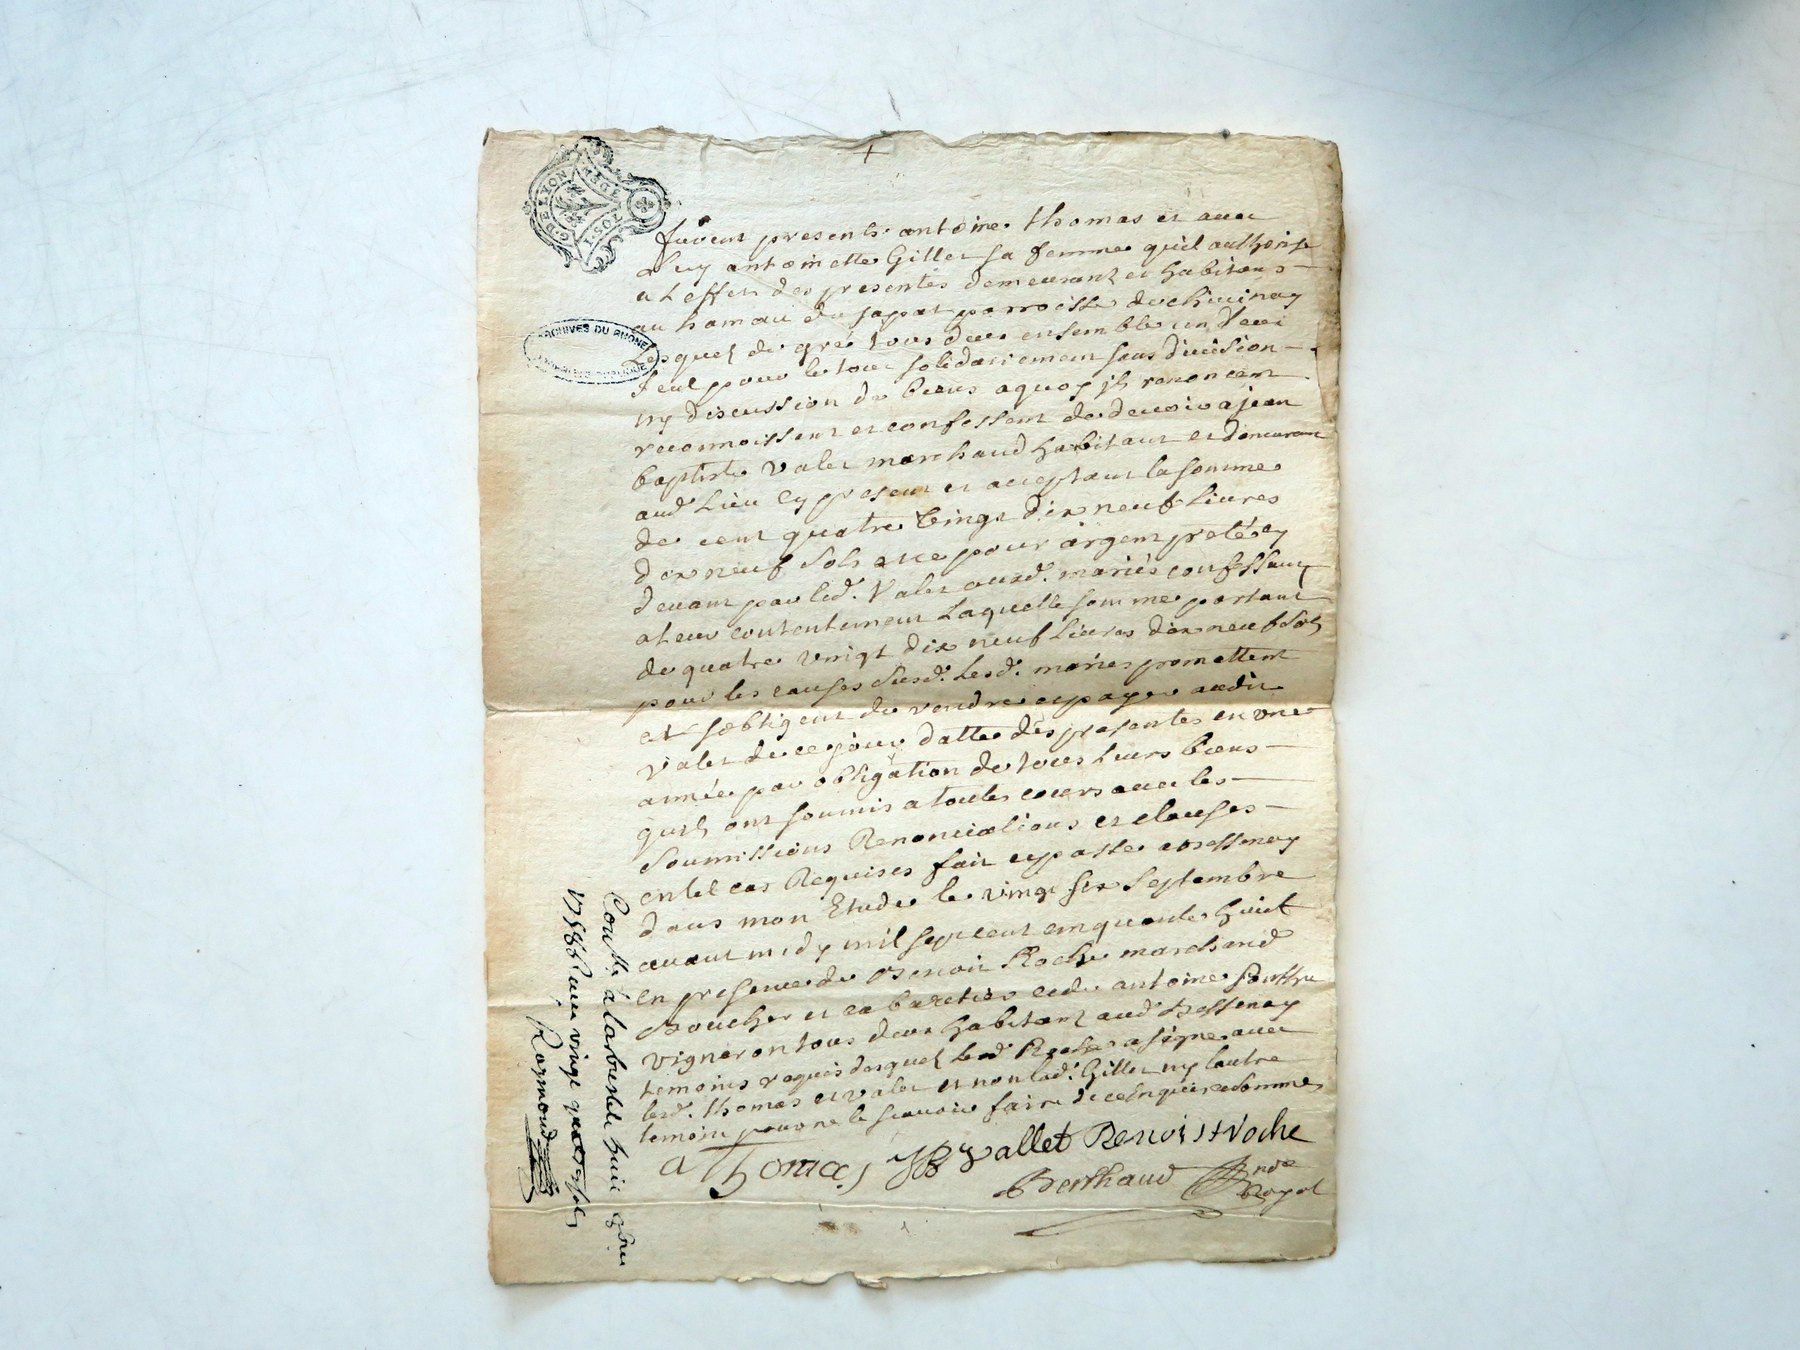 G. DE LYON
2 DEN
TOS. I
ARCHIVES DU RHONE
furent presents antoine thomas et avec
Luy antoinette Gillet sa femme quil authorise
a L effet des presentes demeurant et habitans
au hameau du sapat parroisse de chivinay
Lesquel de gré tous deux ensemble un deux
seul pour le tout solidairement sans division
ny discussion de biens a quoy ils renoncent
reconnoissent et confessent de devoir a jean
baptiste valet marchand habitant et demeurant
aud. Lieu Cy present et acceptant la somme
de cent quatre vingt dix neuf Livres
dix neuf sols et ce pour argent preté cy
devant par led. Valet ausd. mariés confessant
a leur contentement Laquelle somme portant
de quatre vingt dix neuf Livres dix neuf sols
pour les causes susd. Lesd. mariés promettent
et sobligent de rendre et payer audit
Valet de ce jour datte des presentes en une
année par obligation de tous Leurs biens
quils ont soumis a toutes cours avec les
soumissions Renonciations et clauses
en tel cas Requises fait et passé a bessenay
dans mon Etude le vingt six septembre
avant midy mil sept cent cinquante huict
en presence de Benoit Roche marchand
Boucher et cabaretier et de antoine
vigneron tous deux habitant aud. Bessenay
temoins requis desquel led. Roche a signe avec
lesd. thomas et valet et non lad. Gillet ny lautre
temoin pour ne le scavoir faire de ce Enquis et somme
a Thomas JB Vallet Benoist Roche
Berthaud
Royal
Contlle a Larbresle le huit 8bre
1758 Reçu vingt quatre sols
Raymond